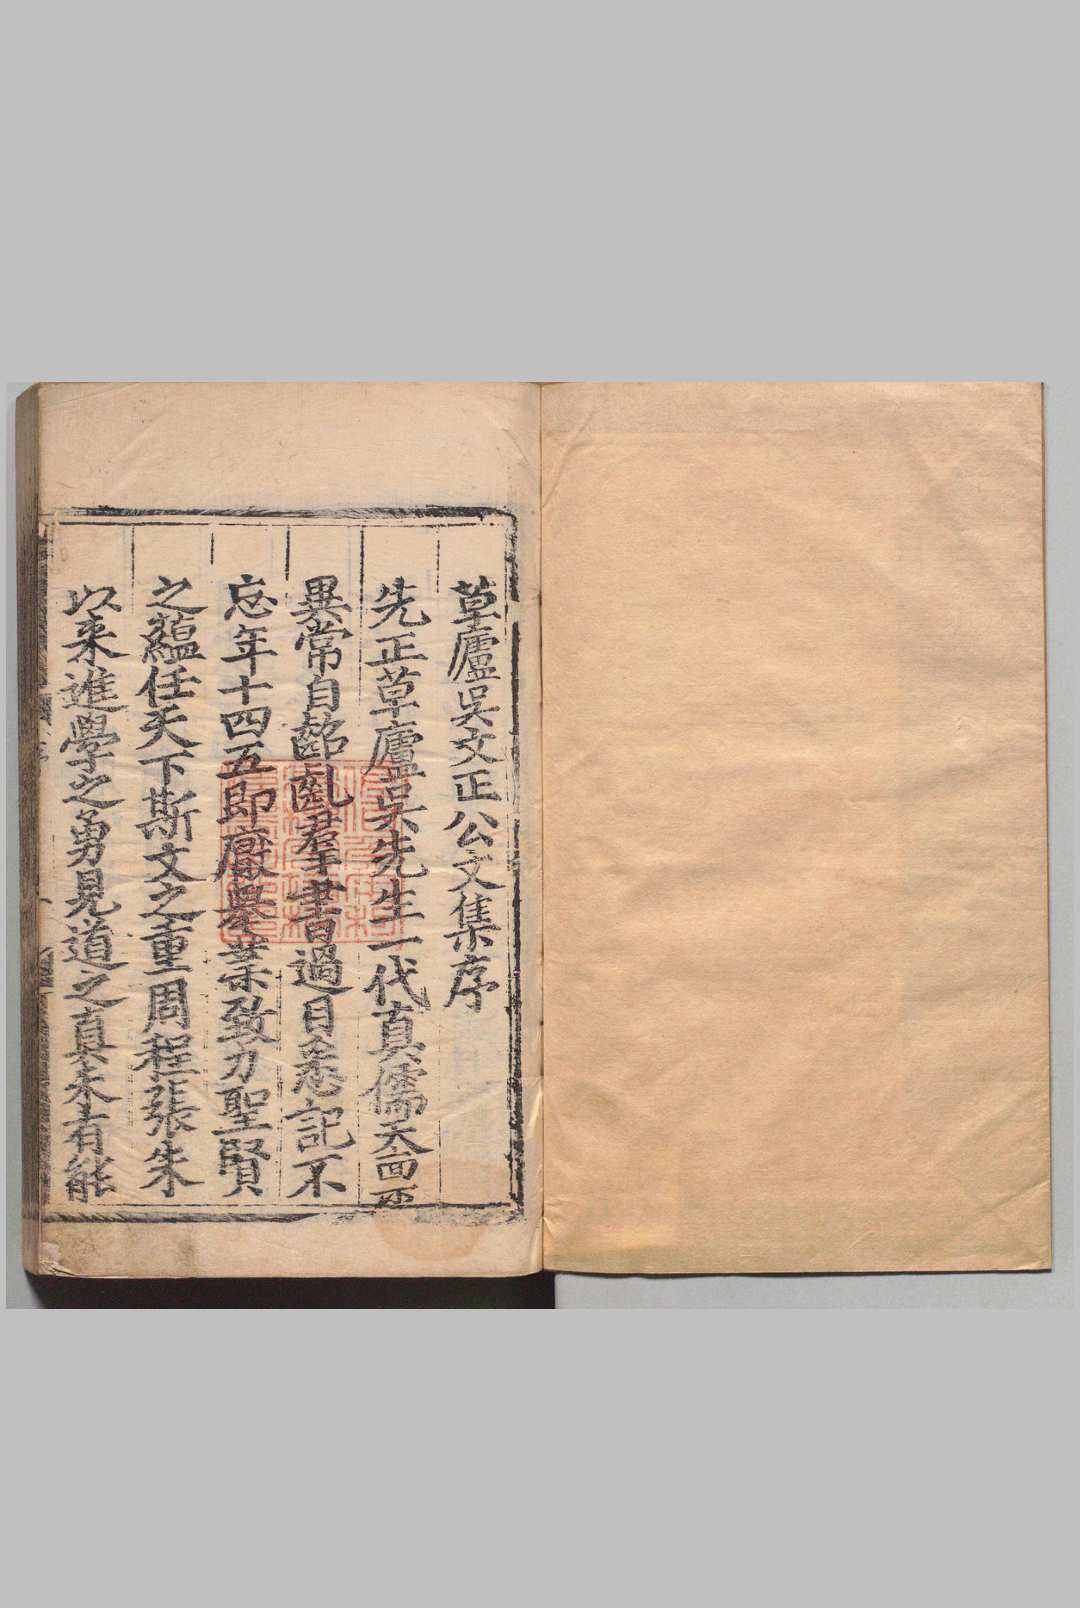 草廬吳文正公文集序
先正草廬吳先生一代真儒天面不
異常自齠齔羣書過目悉記不
忘年十四五即廢舉業致力聖賢
之蘊任天下斯文之重周程張朱
以來進學之勇見道之真未有能